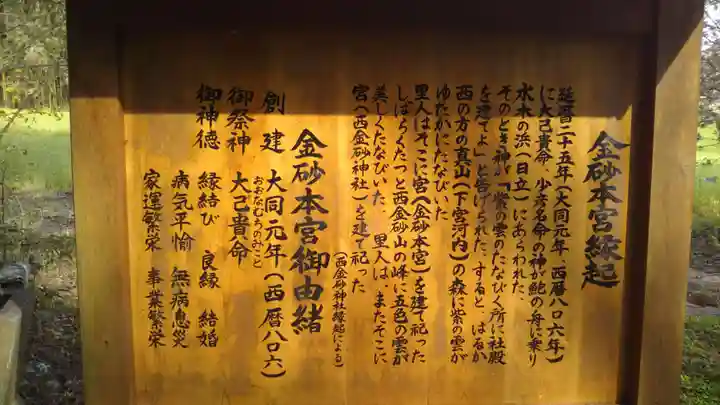 金砂本宮縁起
延暦二十五年(大同元年、西暦八〇六年)
に大己貴命 少彦名命の神が鮑の舟に乗り
水木の浜(日立)にあらわれた、
そのとき神が「紫の雲のたなびく所に社殿
を建てよ」と告げられた、すると、はるか
西の方の真山(下宮河内)の森に紫の雲が
ゆたかにたなびいた
里人はそこに宮(金砂本宮)を建て祀った
しばらくたつと西金砂山の峰に五色の雲が
美しくたなびいた、里人は、またそこに
宮(西金砂神社)を建て祀った
(西金砂神社縁起による)
金砂本宮御由緒
創建 大同元年(西暦八〇六)
御祭神 大己貴命
おおなむちのみこと
御神徳 縁結び 良縁 結婚
病気平愉 無病息災
家運繁栄 事業繁栄